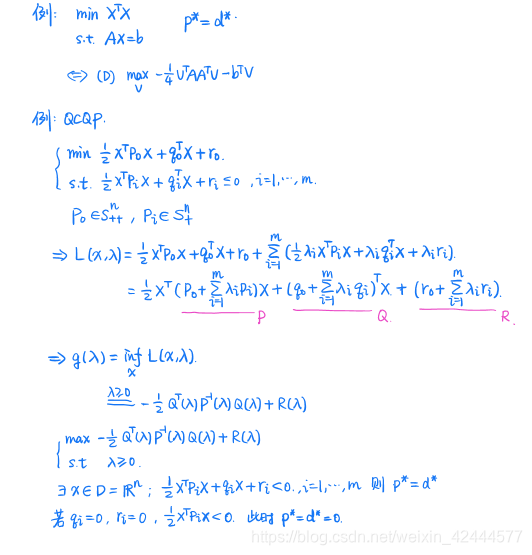 例: min XᵀX p*=d*.
s.t. AX=b
⟺ (D) max_v -1/4 VᵀAAᵀV-bᵀV
例: QCQP.
{ min 1/2 XᵀP₀X+q₀ᵀX+r₀.
s.t. 1/2 XᵀPᵢX+qᵢᵀX+rᵢ≤0, i=1,⋯,m.
P₀∈Sⁿ₊₊, Pᵢ∈Sⁿ₊
⇒ L(x,λ)=1/2 XᵀP₀X+q₀ᵀX+r₀+∑_{i=1}^{m}(1/2 λᵢXᵀPᵢX+λᵢqᵢᵀX+λᵢrᵢ).
=1/2 Xᵀ(P₀+∑_{i=1}^{m}λᵢPᵢ)X+(q₀+∑_{i=1}^{m}λᵢqᵢ)ᵀX+(r₀+∑_{i=1}^{m}λᵢrᵢ).
P Q R
⇒ g(λ)=inf_x L(x,λ).
λ≥0
= -1/2 Qᵀ(λ)P⁻¹(λ)Q(λ)+R(λ)
{ max -1/2 Qᵀ(λ)P⁻¹(λ)Q(λ)+R(λ)
s.t λ≥0.
∃x∈D=ℝⁿ; 1/2 XᵀPᵢX+qᵢX+rᵢ<0, i=1,⋯,m 则 p*=d*
若 qᵢ=0, rᵢ=0, 1/2 XᵀPᵢX<0. 此时 p*=d*=0.
https://blog.csdn.net/weixin_42444577